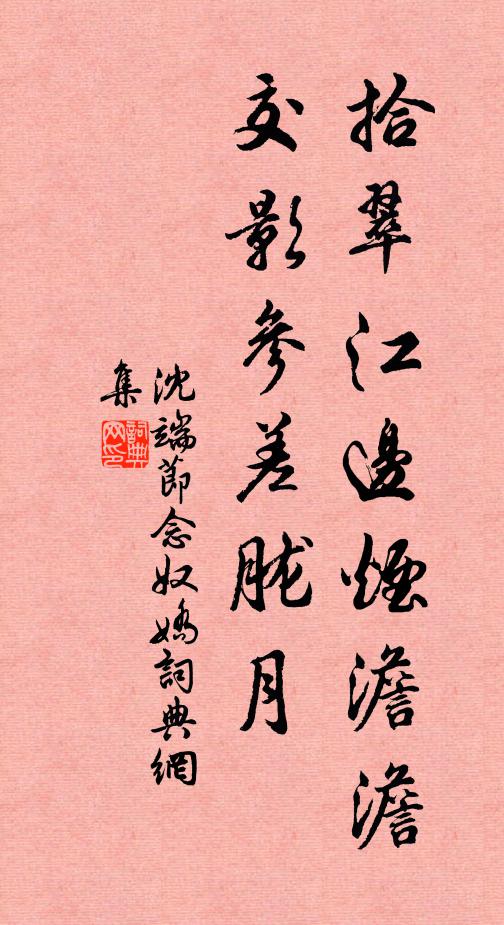 拾翠江邊煙澹澹
交影參差朧月
沈端節念奴嬌詞典網
集
詞典
网印